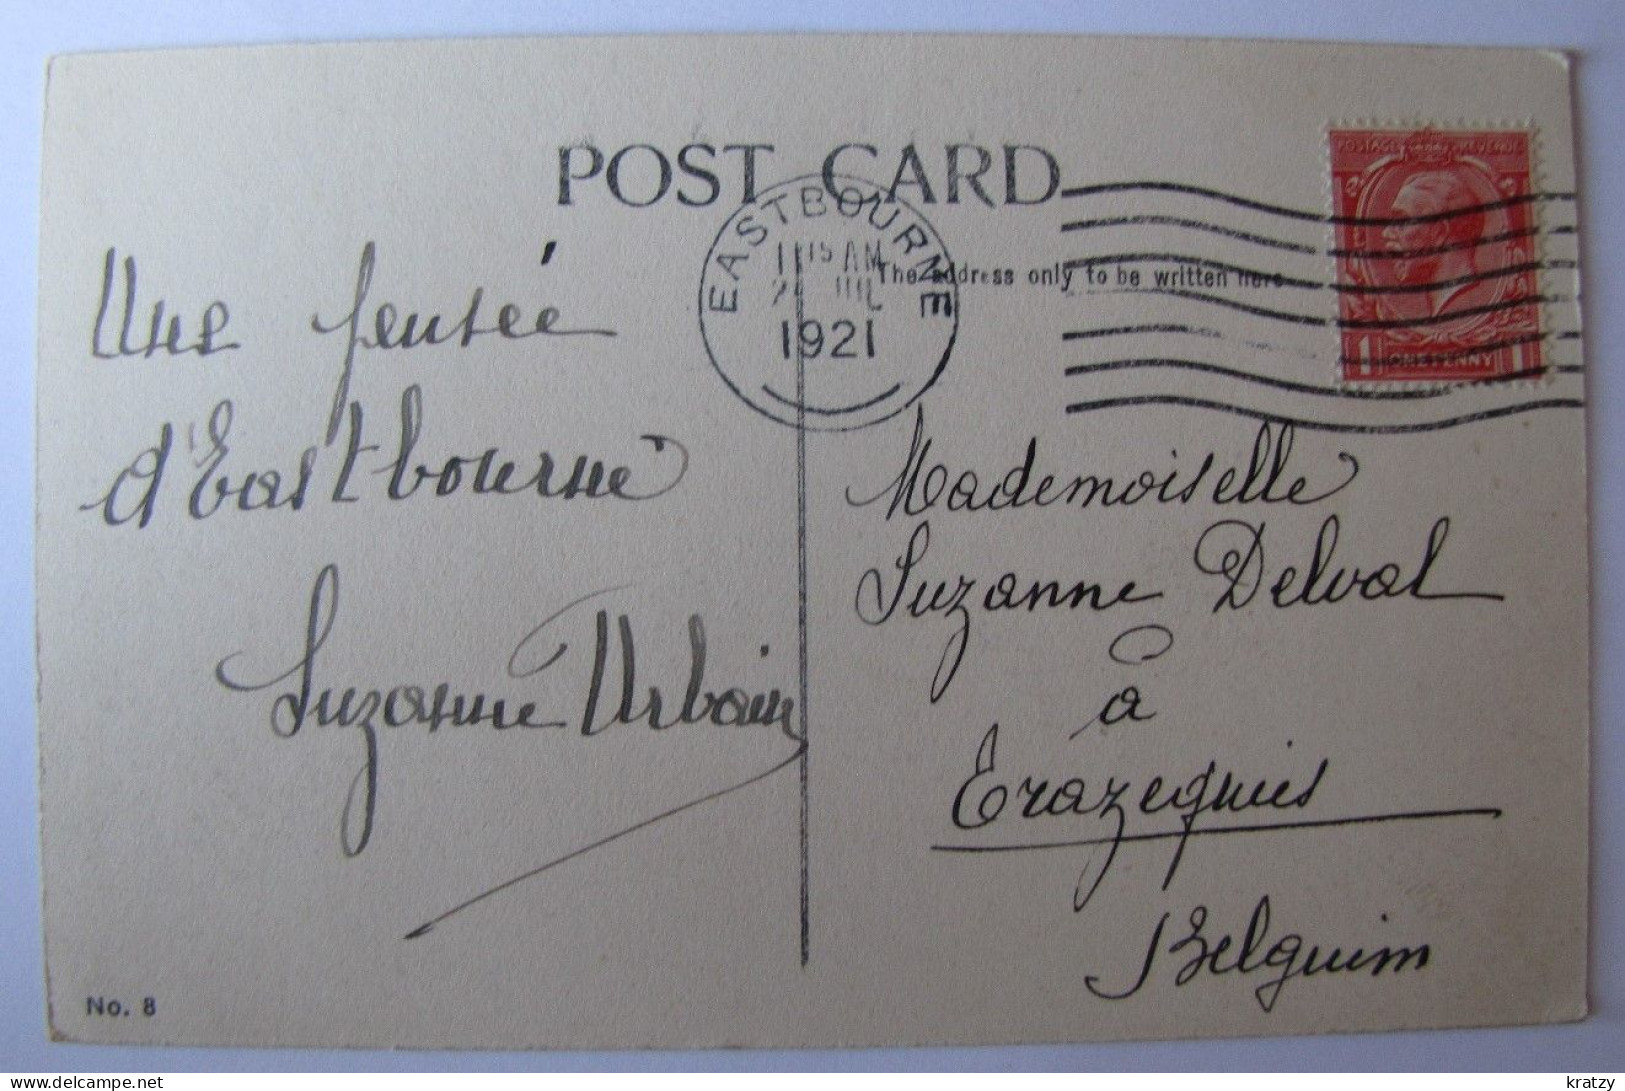 POST CARD
EASTBOURNE
11 15 AM
JUL
1921
The address only to be written here
POSTAGE REVENUE
1 ONE PENNY 1
Une pensée
d'Eastbourne
Suzanne Urbain
Mademoiselle
Suzanne Delval
à
Erazequies
Belguim
No. 8
kratzy